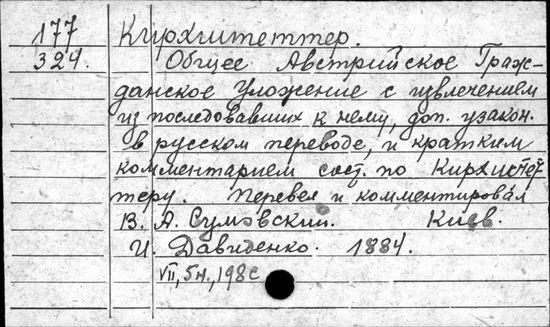 177 Кирхштеттер.
324. Общее Австрийское Граж-
данское Уложение с извлечением
из последовавших к нему, доп. узакон.
в русском переводе, и кратким
комментарием сост. по Кирхштет-
теру. Перевел и комментировал
В. А. Сумовский. Киев.
И. Давиденко. 1884.
VII, 5н., 198 с